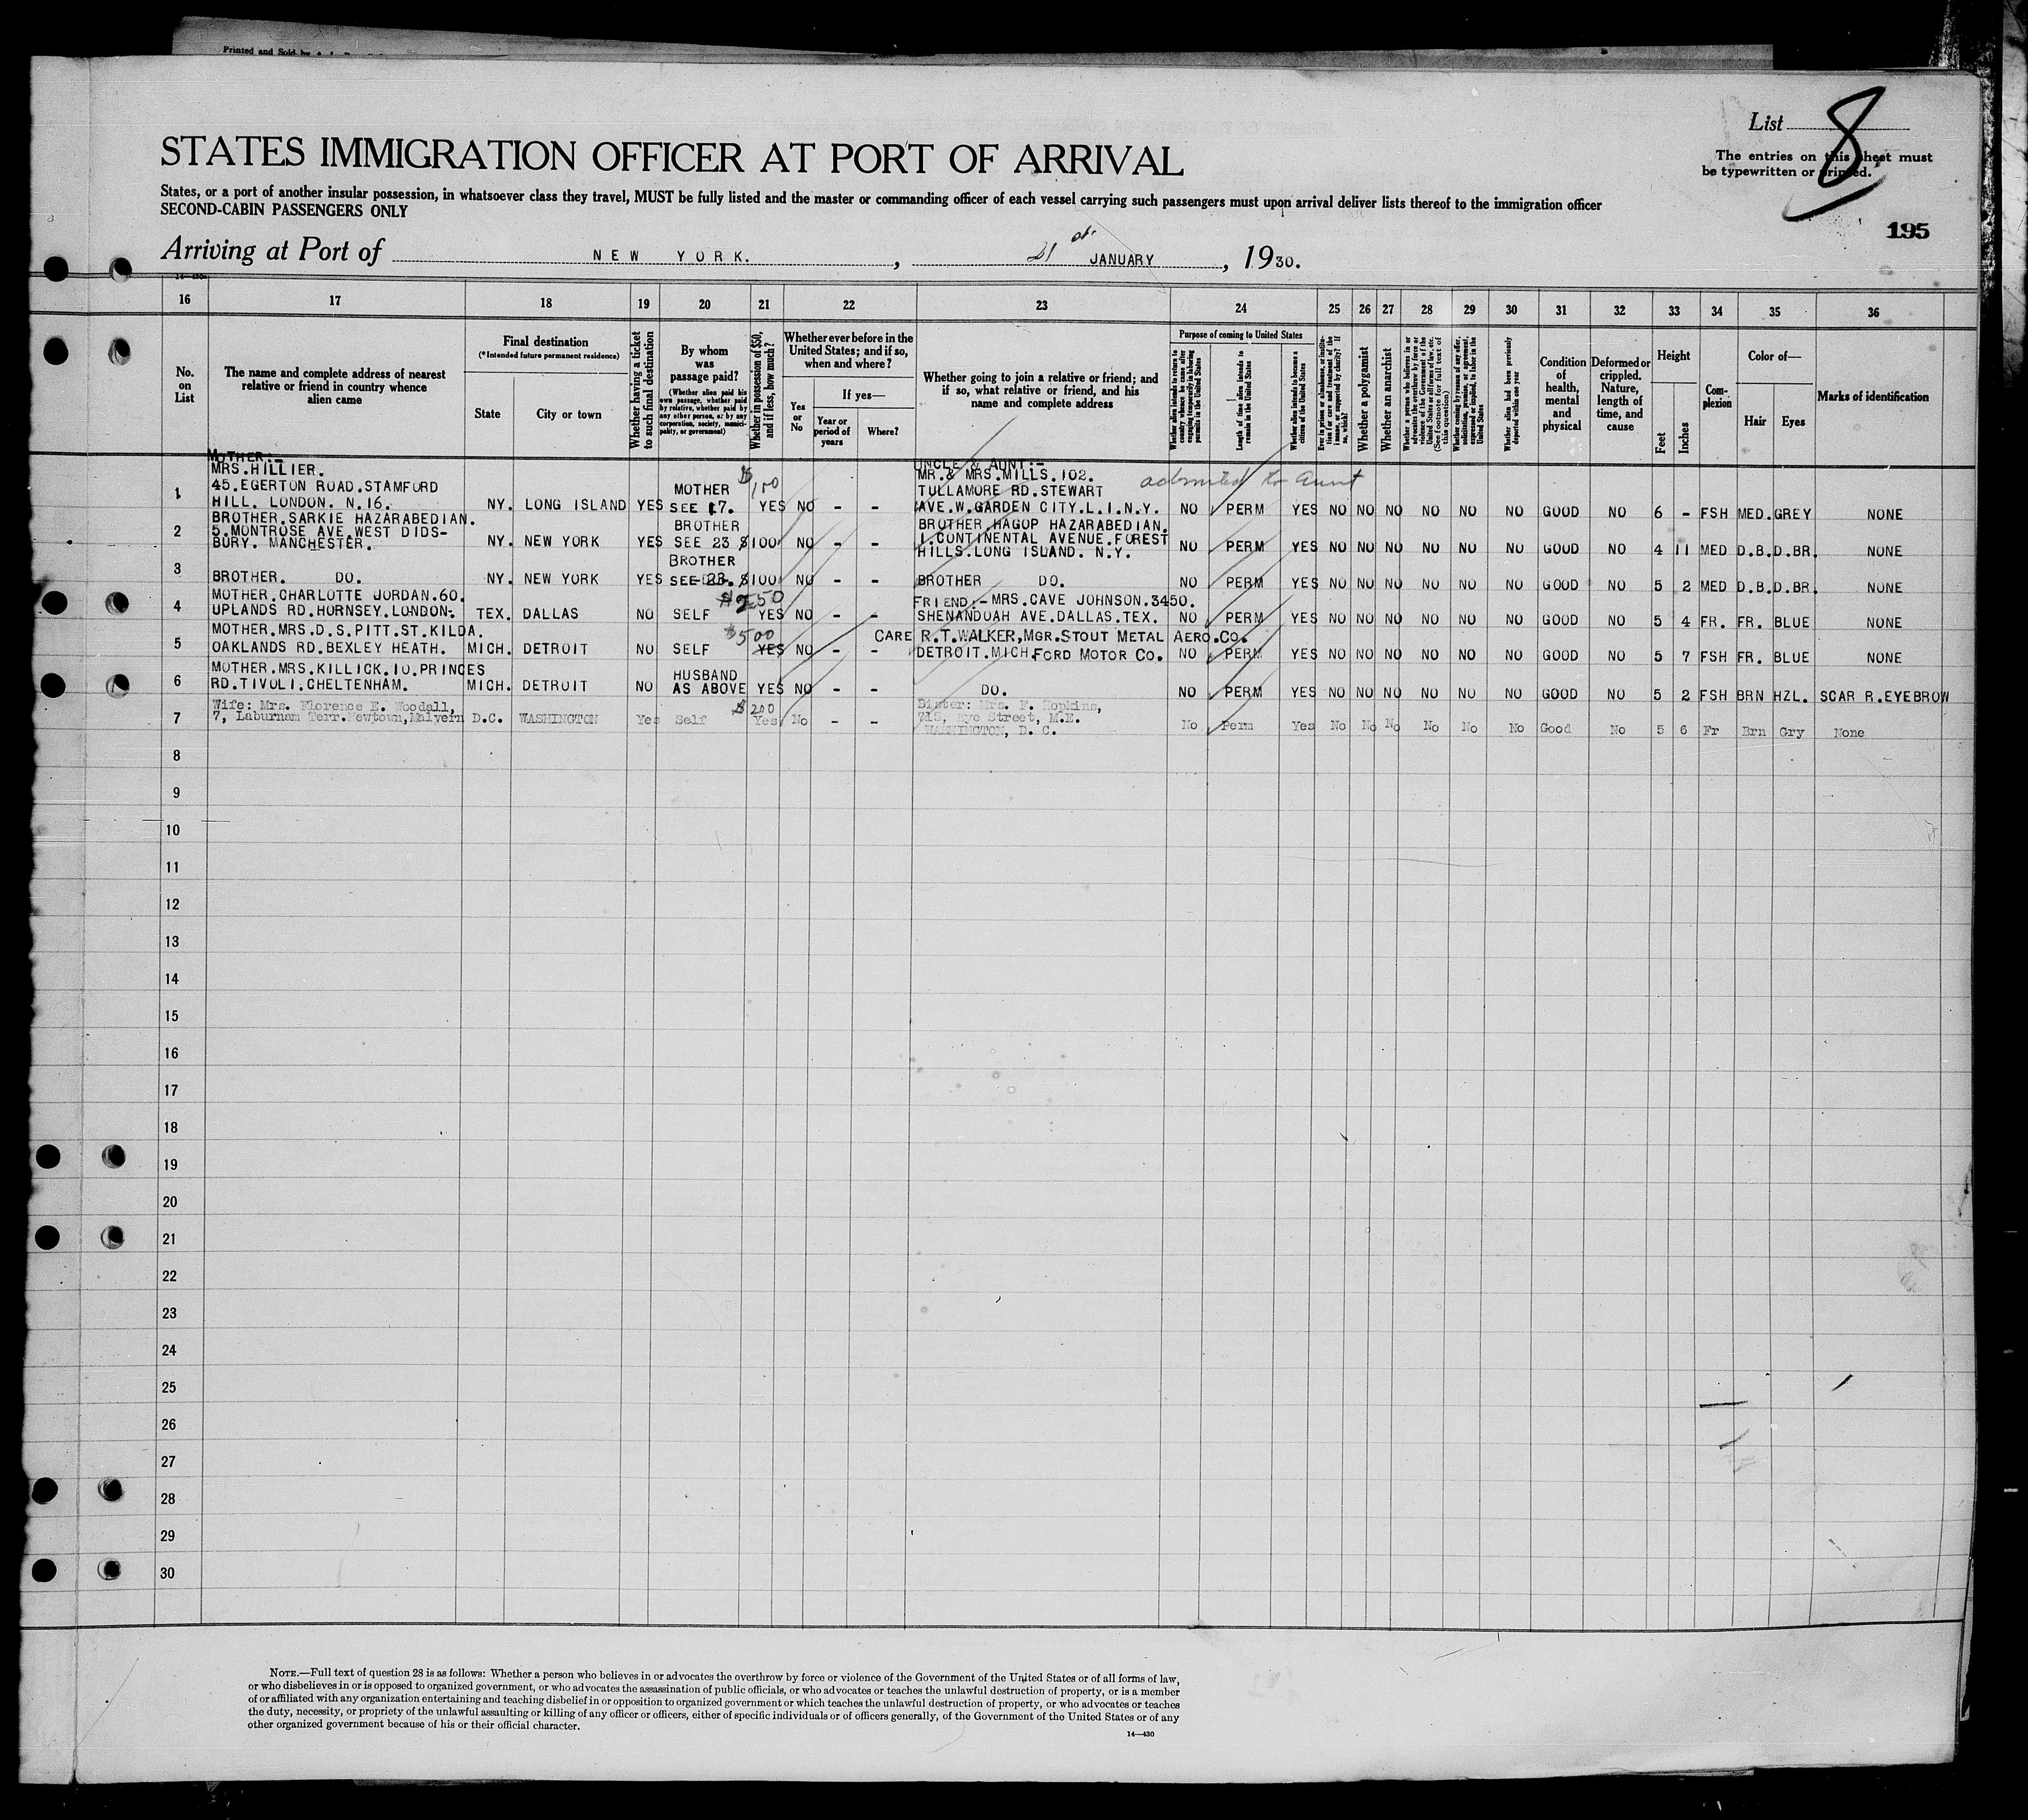 Printed and Sold by
List 8
The entries on this sheet must
be typewritten or printed.
195
STATES IMMIGRATION OFFICER AT PORT OF ARRIVAL
States, or a port of another insular possession, in whatsoever class they travel, MUST be fully listed and the master or commanding officer of each vessel carrying such passengers must upon arrival deliver lists thereof to the immigration officer
SECOND-CABIN PASSENGERS ONLY
Arriving at Port of NEW YORK. , 21st JANUARY , 1930.
14-430
16 17 18 19 20 21 22 23 24 25 26 27 28 29 30 31 32 33 34 35 36
No. on List
The name and complete address of nearest
relative or friend in country whence
alien came
Final destination
(*Intended future permanent residence)
State
City or town
Whether having a ticket
to such final destination
By whom
was
passage paid?
(Whether alien paid his
own passage, whether paid
by relative, whether paid by
any other person, or by any
corporation, society, munici-
pality, or government)
Whether in possession of $50,
and if less, how much?
Whether ever before in the
United States; and if so,
when and where?
Yes
or
No
If yes—
Year or
period of
years
Where?
Whether going to join a relative or friend; and
if so, what relative or friend, and his
name and complete address
Purpose of coming to United States
Whether alien intends to return to
country whence he came after
engaging temporarily in laboring
pursuits in the United States
Length of time alien intends to
remain in the United States
Whether alien intends to become a
citizen of the United States
Ever in prison or almshouse, or institu-
tion for care and treatment of the
insane, or supported by charity? If
so, which?
Whether a polygamist
Whether an anarchist
Whether a person who believes in or
advocates the overthrow by force or
violence of the Government of the
United States or all forms of law, etc.
(See footnote for full text of
this question)
Whether coming by reason of any offer,
solicitation, promise, or agreement,
expressed or implied, to labor in the
United States
Whether alien had been previously
deported within one year
Condition
of
health,
mental
and
physical
Deformed or
crippled.
Nature,
length of
time, and
cause
Height
Feet
Inches
Com-
plexion
Color of—
Hair
Eyes
Marks of identification
MOTHER:- UNCLE & AUNT:-
MRS.HILLIER. MR.& MRS.MILLS.102. admitted to Aunt
45.EGERTON ROAD.STAMFORD MOTHER $150 TULLAMORE RD.STEWART
1 HILL. LONDON. N.16. NY. LONG ISLAND YES SEE 17. YES NO - - AVE.W.GARDEN CITY.L.I.N.Y. NO PERM YES NO NO NO NO NO NO GOOD NO 6 - FSH MED. GREY NONE
BROTHER.SARKIE HAZARABEDIAN. BROTHER BROTHER.HAGOP HAZARABEDIAN.
2 5.MONTROSE AVE.WEST DIDS- NY. NEW YORK YES SEE 23 $100 NO - - 1.CONTINENTAL AVENUE.FOREST NO PERM YES NO NO NO NO NO NO GOOD NO 4 11 MED D.B. D.BR. NONE
BURY. MANCHESTER. HILLS.LONG ISLAND. N.Y.
BROTHER
3 BROTHER. DO. NY. NEW YORK YES SEE 23. $100 NO - - BROTHER DO. NO PERM YES NO NO NO NO NO NO GOOD NO 5 2 MED D.B. D.BR. NONE
MOTHER.CHARLOTTE JORDAN.60. $250 FRIEND:-MRS.CAVE JOHNSON.3450.
4 UPLANDS RD.HORNSEY.LONDON. TEX. DALLAS NO SELF YES NO - - SHENANDOAH AVE.DALLAS.TEX. NO PERM YES NO NO NO NO NO NO GOOD NO 5 4 FR. FR. BLUE NONE
MOTHER.MRS.D.S.PITT.ST.KILDA. $500 CARE R.T.WALKER,MGR.STOUT METAL AERO.CO.
5 OAKLANDS RD.BEXLEY HEATH. MICH. DETROIT NO SELF YES NO - - DETROIT.MICH.FORD MOTOR CO. NO PERM YES NO NO NO NO NO NO GOOD NO 5 7 FSH FR. BLUE NONE
MOTHER.MRS.KILLICK.10.PRINCES HUSBAND
6 RD.TIVOLI.CHELTENHAM. MICH. DETROIT NO AS ABOVE YES NO - - DO. NO PERM YES NO NO NO NO NO NO GOOD NO 5 2 FSH BRN HZL. SCAR R.EYEBROW
Wife: Mrs. Florence E. Woodall, $200 Sister: Mrs. F. Hopkins,
7 7, Laburnam Terr.Newtown,Malvern D.C. WASHINGTON Yes Self Yes No - - 715, Eye Street, M.E. No Perm Yes No No No No No No Good No 5 6 Fr Brn Gry None
WASHINGTON, D. C.
8
9
10
11
12
13
14
15
16
17
18
19
20
21
22
23
24
25
26
27
28
29
30
NOTE.—Full text of question 28 is as follows: Whether a person who believes in or advocates the overthrow by force or violence of the Government of the United States or of all forms of law,
or who disbelieves in or is opposed to organized government, or who advocates the assassination of public officials, or who advocates or teaches the unlawful destruction of property, or is a member
of or affiliated with any organization entertaining and teaching disbelief in or opposition to organized government or which teaches the unlawful destruction of property, or who advocates or teaches
the duty, necessity, or propriety of the unlawful assaulting or killing of any officer or officers, either of specific individuals or of officers generally, of the Government of the United States or of any
other organized government because of his or their official character.
14—430